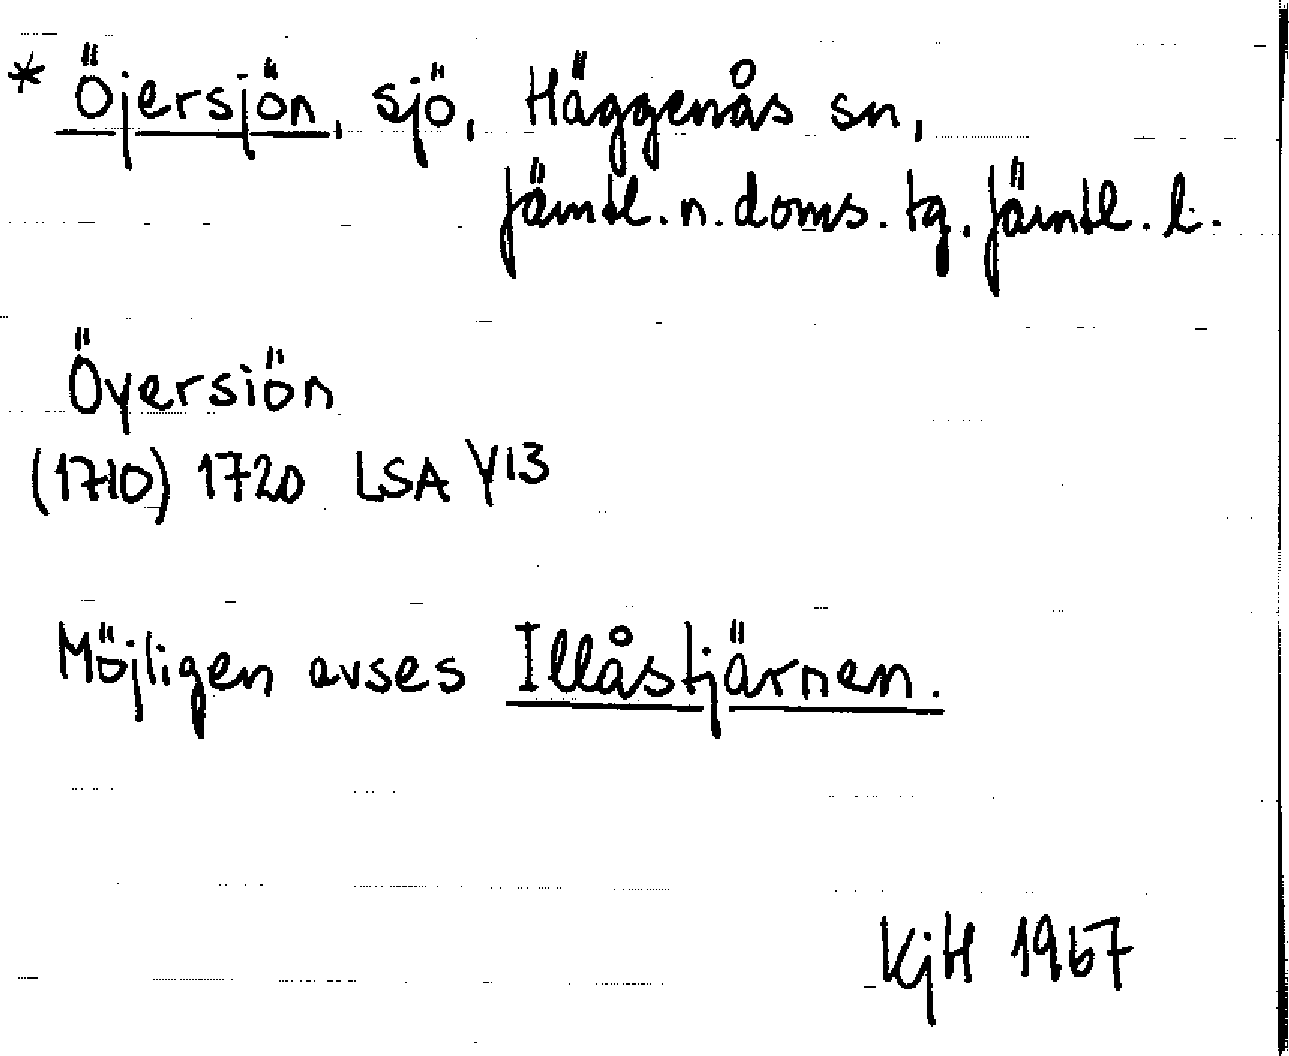 * Öjersjön, sjö, Häggenås sn,
Jämtl. n. doms. tg. Jämtl. l.
Öyersiön
(1710) 1720 LSA Y13
Möjligen avses Illåstjärnen.
KjH 1967